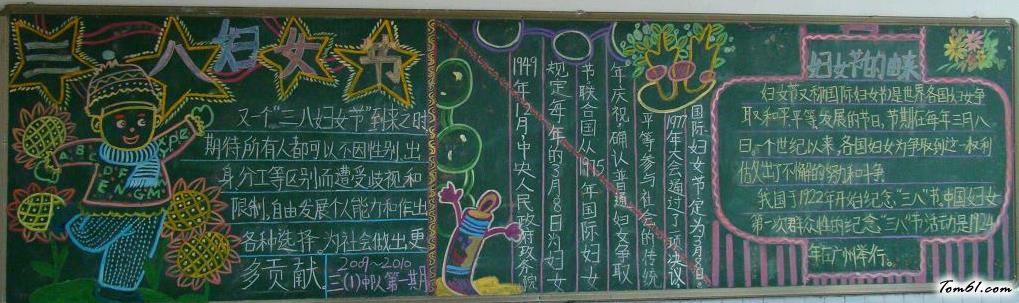 三八妇女节
又一个"三八妇女节"到来之时
期待所有人都可以不因性别、出
身、分工等区别而遭受歧视和
限制,自由发展个人能力和作出
各种选择,为社会做出更
多贡献
2009~2010
三(1)中队第一期
1949年12月,中央人民政府政务院
规定每年的3月8日为妇女
节联合国从1975年国际妇女
年庆祝,确认普通妇女争取
平等参与社会的传统
1977年大会通过了一项决议
国际妇女节定为3月8日。
妇女节的由来
妇女节又称国际妇女节是世界各国妇女争
取和平平等、发展的节日,节期在每年三月八
日。一个世纪以来,各国妇女为争取到这一权利
做出了不懈的努力和斗争
我国于1922年开始纪念"三八"节.中国妇女
第一次群众性的纪念"三八"节活动是1924
年在广州举行。
Tom61.com